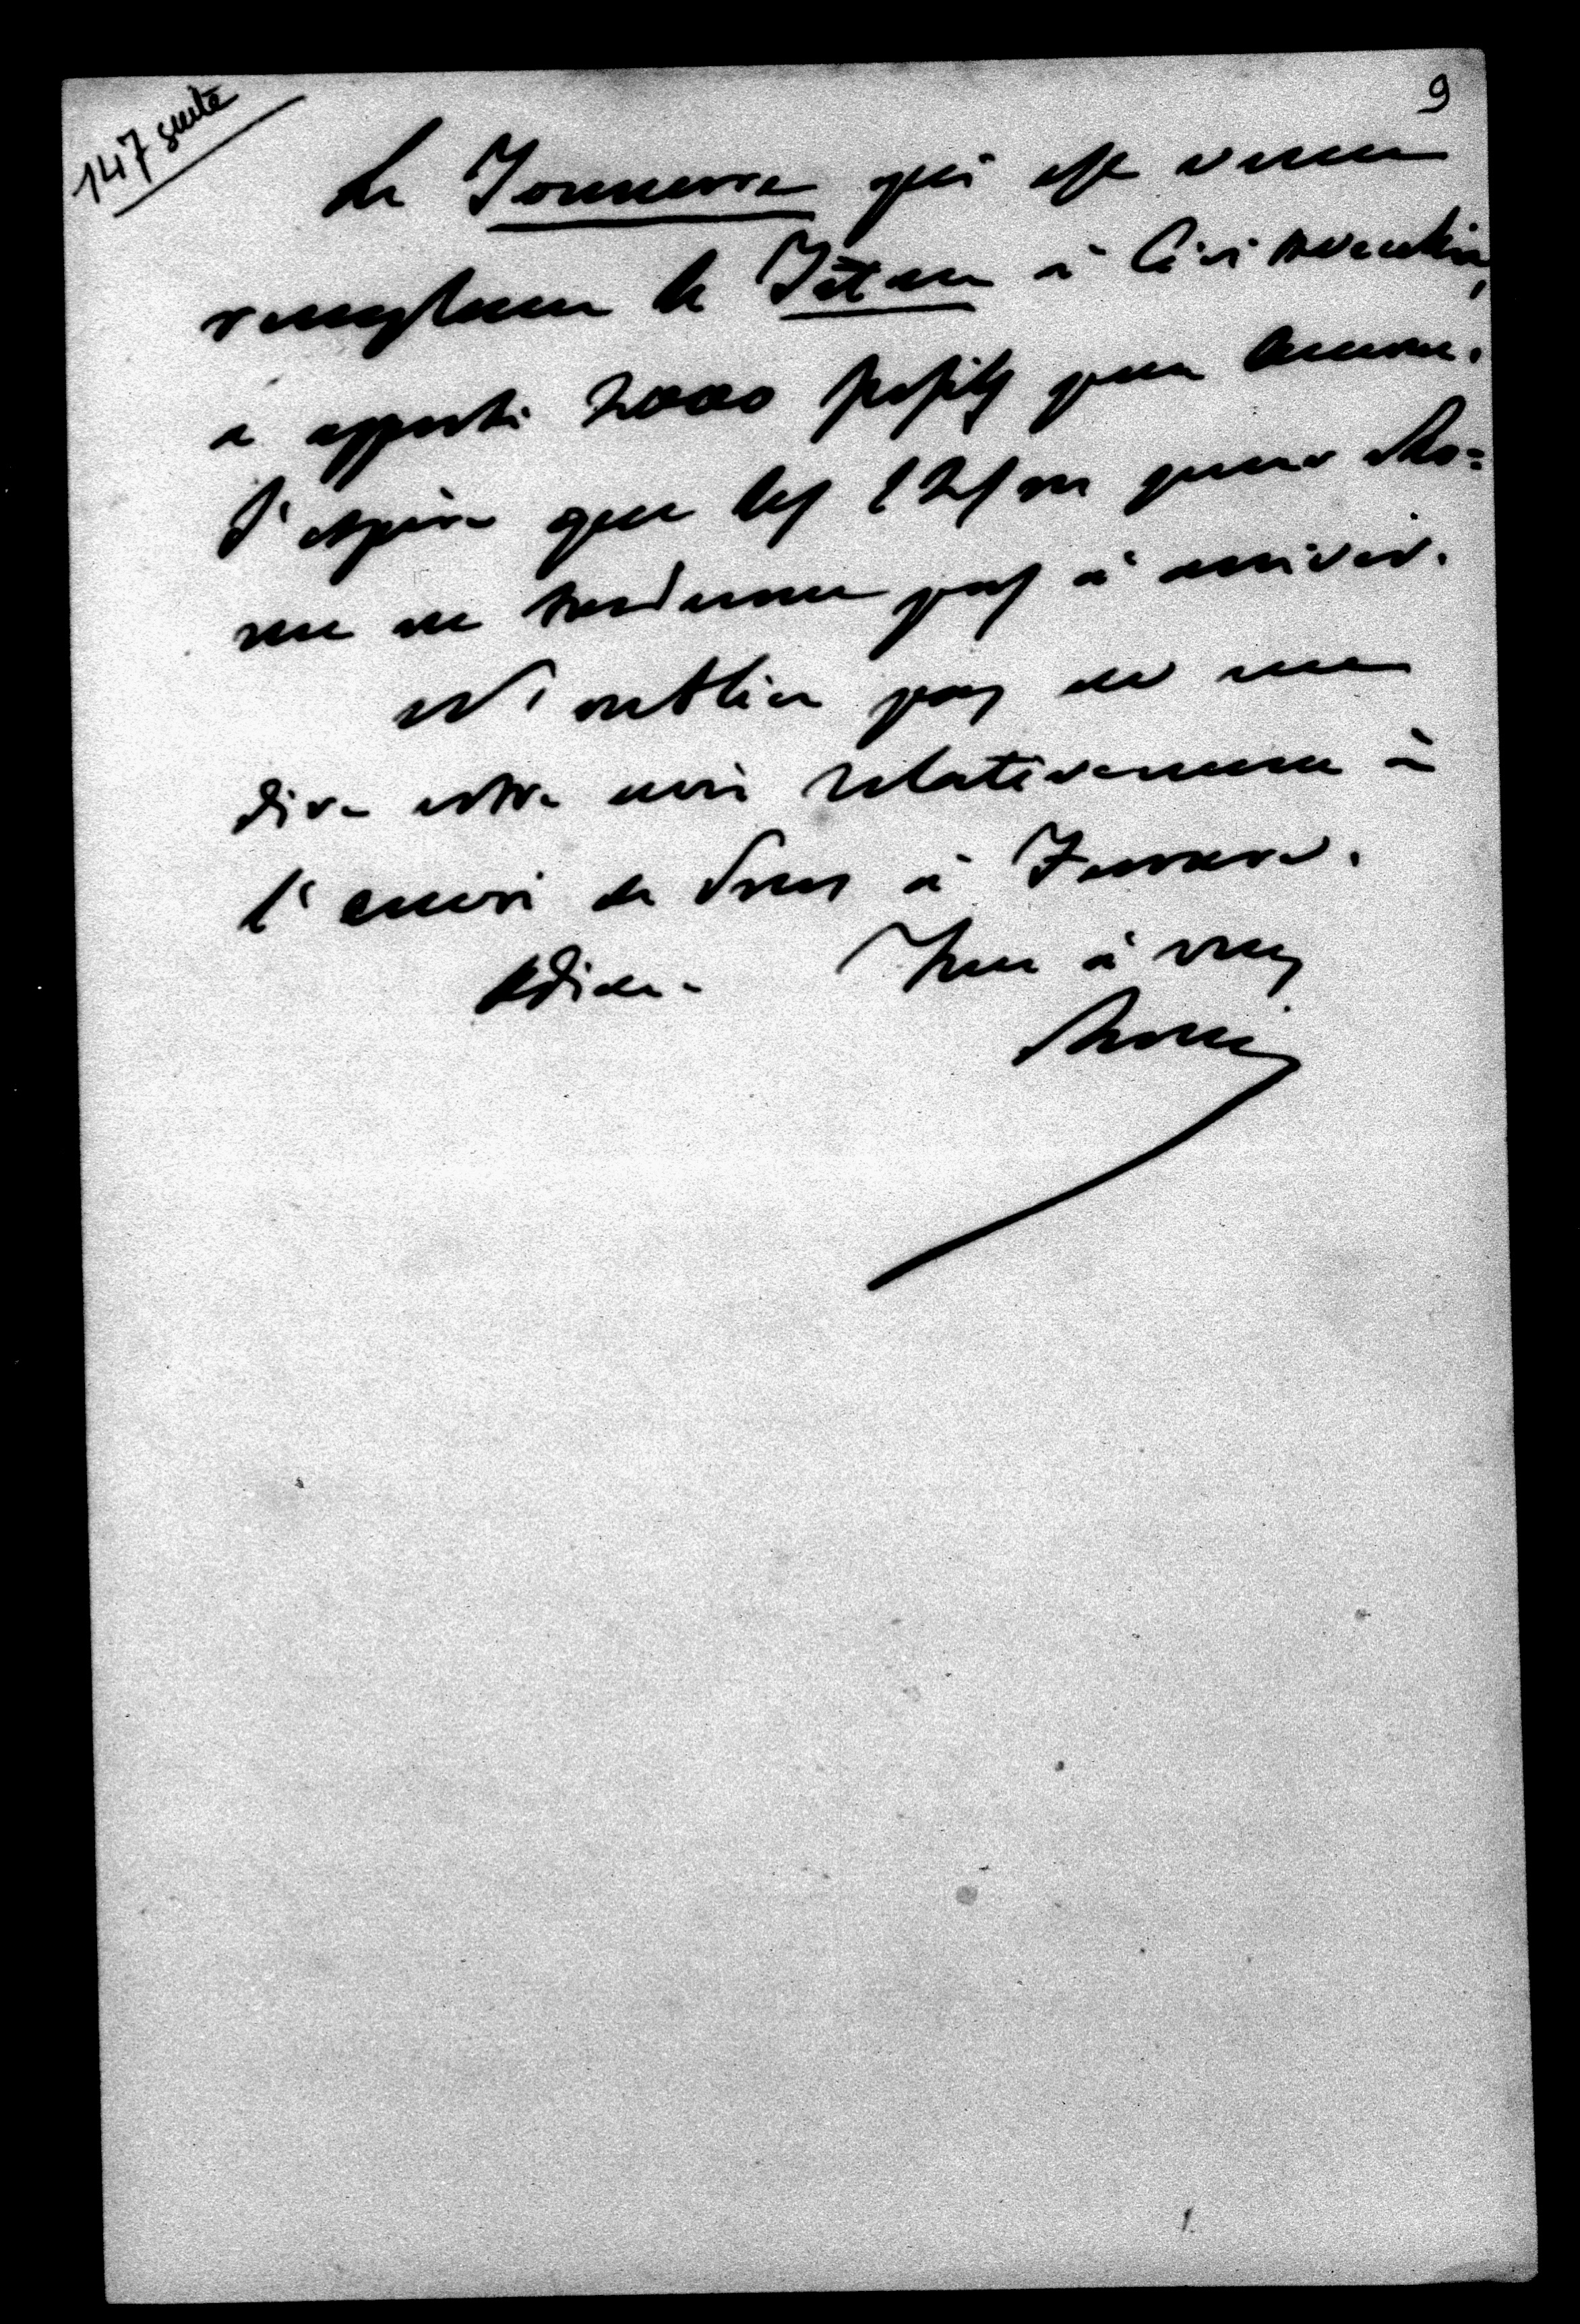 147 suite
9
Le Tonnerre qui est venu
remplacer le Titan à Civitavecchia,
a apporté 2000 fusils pour Ancone.
J'espère que les pour Ro=
me ne tarderont pas à arriver.
N'oubliez pas de me
dire votre avis relativement à
l'envoi de à Ferrare.
Adieu. Tout à vous
Rossi